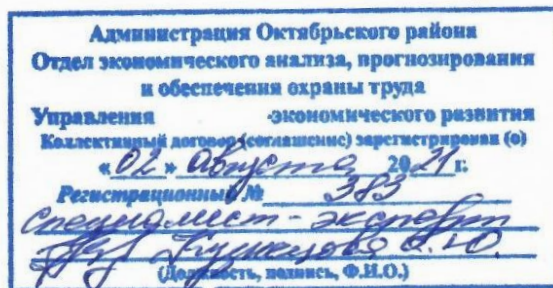 Администрация Октябрьского района
Отдел экономического анализа, прогнозирования
и обеспечения охраны труда
Управления -экономического развития
Коллективный договор (соглашение) зарегистрирован (о)
« 02 » августа 2021 г.
Регистрационный № 383
специалист - эксперт
Кузнецова
(Должность, подпись, Ф.И.О.)